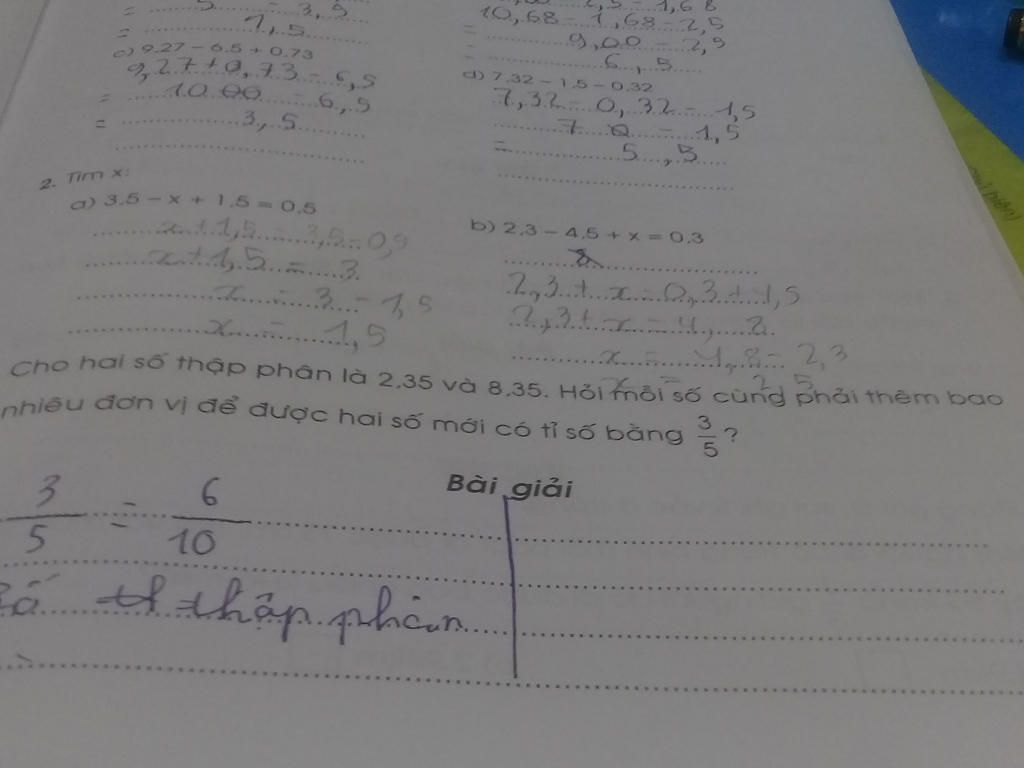 = 5 - 3,5
= 1,5
10,68 - 1,68 - 2,5
= 9,00 - 2,5
= 6,5
c) 9,27 - 6,5 + 0,73
9,27 + 0,73 - 6,5
= 10 00 - 6,5
= 3,5
d) 7,32 - 1,5 - 0,32
7,32 - 0,32 - 1,5
7 0 - 1,5
= 5,5
2. Tìm x:
a) 3,5 - x + 1,5 = 0,5
x + 1,5 = 3,5 - 0,5
x + 1,5 = 3
x = 3 - 1,5
x = 1,5
b) 2,3 - 4,5 + x = 0,3
2,3 + x = 0,3 + 4,5
2,3 + x = 4,8
x = 4,8 - 2,3
x = 2,5
Cho hai số thập phân là 2,35 và 8,35. Hỏi mỗi số cùng phải thêm bao
nhiêu đơn vị để được hai số mới có tỉ số bằng 3/5 ?
Bài giải
3/5 = 6/10
số thập phân